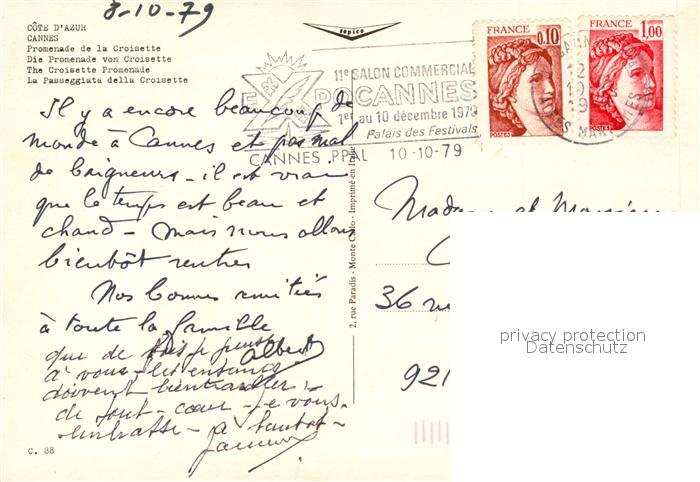 8-10-79
CÔTE D'AZUR
CANNES
Promenade de la Croisette
Die Promenade von Croisette
The Croisette Promenade
La Passeggiata della Croisette
sapico
11e SALON COMMERCIAL
EXPO CANNES
1er au 10 décembre 1979
Palais des Festivals
CANNES PPAL 10-10-79
FRANCE 0,10
POSTES
FRANCE 1,00
POSTES
Il y a encore beaucoup de
monde à Cannes et pas mal
de baigneurs - il est vrai
que le temps est beau et
chaud - mais nous allons
bientôt rentrer
Nos bonnes amitiés
à toute la famille
Albert
que de fois je pense
à vous - les enfants
doivent bien travailler
de tout - cœur - je vous
embrasse - à bientôt -
2, rue Paradis - Monte Carlo - Imprimé en Italie
Madame et Monsieur
36 rue
921
privacy protection
Datenschutz
C. 88